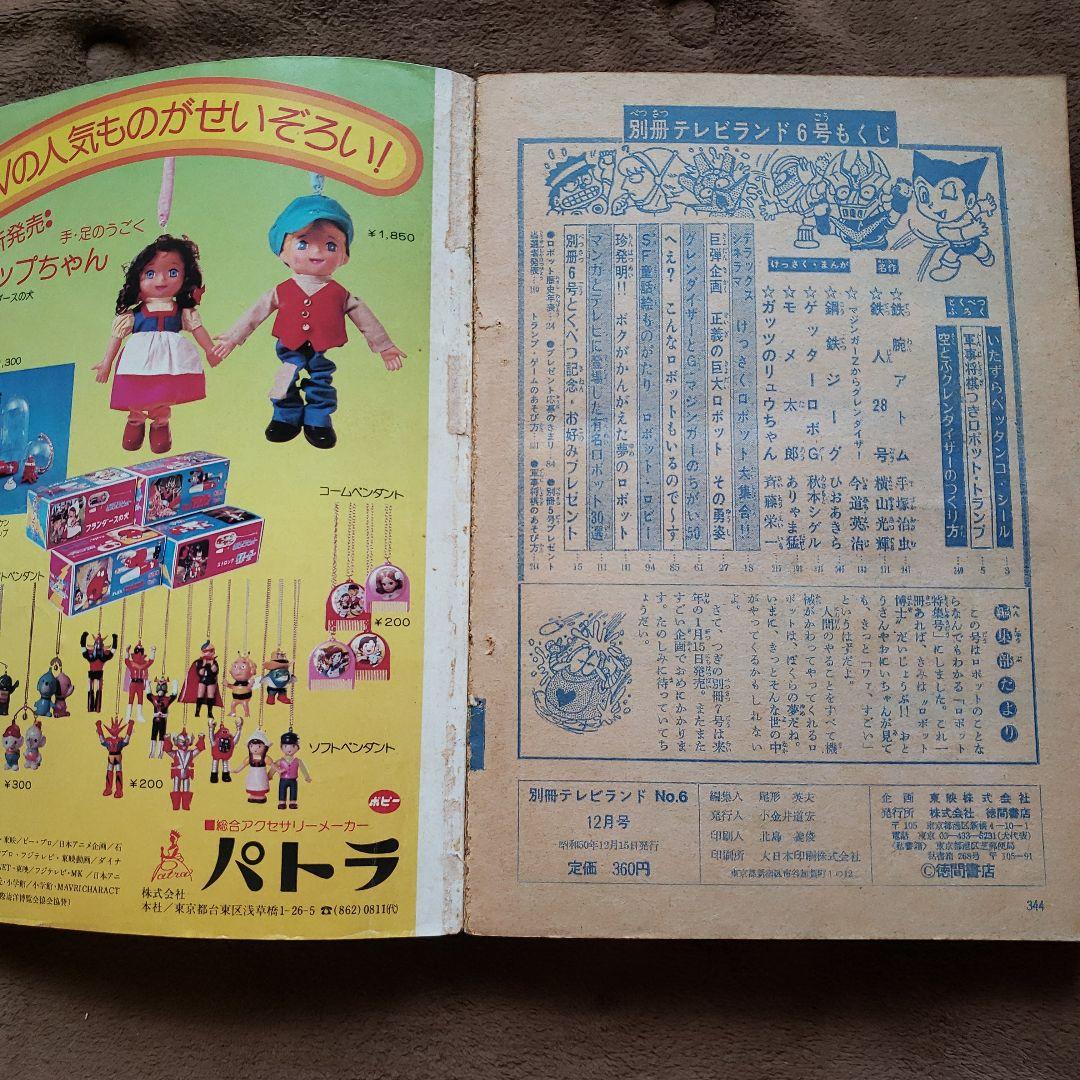 Vの人気ものがせいぞろい!
新発売:
手・足のうごく
ップちゃん
ースの犬
¥1,850
,300
フランダースの犬
コームペンダント
¥200
トペンダント
ソフトペンダント
¥300
¥200
ポピー
■総合アクセサリーメーカー
パトラ
Patra
株式会社
本社/東京都台東区浅草橋1-26-5 ☎(862)0811(代)
別冊テレビランド6号もくじ
とくべつふろく
いたずらペッタンコ・シール 3
軍事将棋つきロボット・トランプ 5
空とぶグレンダイザーのつくり方
名作
けっさく・まんが
☆鉄腕アトム 手塚治虫
☆鉄人28号 横山光輝
☆マジンガーZからグレンダイザー 今道英治
☆鋼鉄ジーグ ひおあきら
☆ゲッターロボG 秋本シゲル
☆モメ太郎 ありゃま猛
☆ガッツのリュウちゃん 斉藤栄一
デラックスパネラマ けっさくロボット大集合!! 18
巨弾企画 正義の巨大ロボット その勇姿 27
グレンダイザーとG・マジンガーのちがい50 61
へえ? こんなロボットもいるので〜す 85
SF童話絵ものがたり ロボット・ロビー 94
珍発明!! ボクがかんがえた夢のロボット
マンガとテレビに登場した有名ロボット30選
別冊6号とくべつ記念・お好みプレゼント 15
●ロボット歴史年表 24 ●プレゼント応募のきまり 84 ●別冊5号プレゼント
当選者発表 トランプ・ゲームのあそび方 ●軍事将棋のあそび方
編集部だより
この号はロボットのことな
らなんでもわかる「ロボット
特集号」にしました。これ一
冊あれば、きみは〝ロボット
博士〟だいじょうぶ!! おと
うさんやおにいちゃんが見て
も、きっと「ワァ、すごい」
というはずだよ。
人間のやることをすべて機
械がかわってやってくれるロ
ボットは、ぼくらの夢だね。
いまに、きっとそんな世の中
がやってくるかもしれない
よ。
さて、つぎの別冊7号は来
年の1月15日発売。またまた
すごい企画でおめにかかりま
す。たのしみに待っていてち
ょうだい。
別冊テレビランド No.6
12月号
昭和50年12月15日発行
定価 360円
編集人 尾形英夫
発行人 小金井道宏
印刷人 北島義俊
印刷所 大日本印刷株式会社
東京都新宿区市谷加賀町1の12
企画 東映株式会社
発行所 株式会社 徳間書店
〒105 東京都港区新橋4-10-1
電話 東京 03-433-6231(大代表)
(私書箱) 東京都港区芝郵便局
私書箱 268号 〒105-91
©徳間書店
344